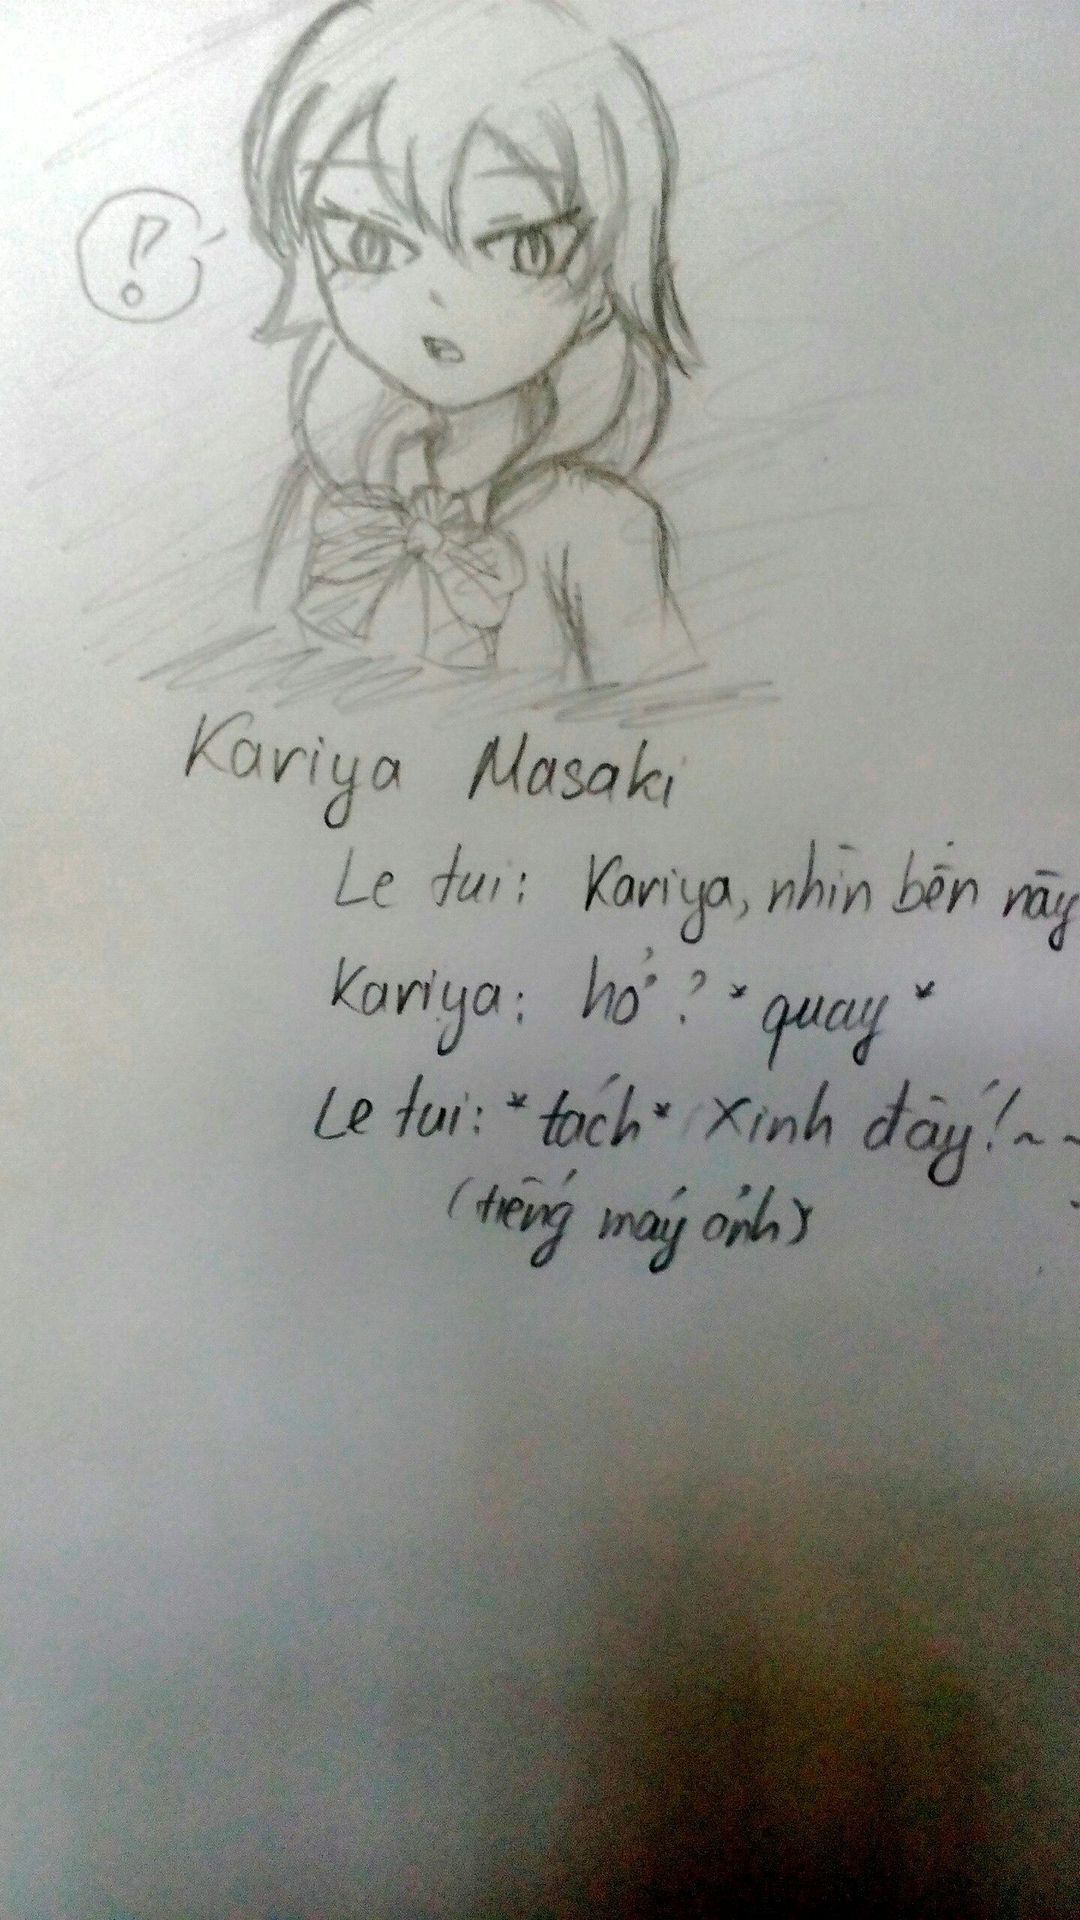 !?
Kariya Masaki
Le tui: Kariya, nhìn bên này
Kariya: hở? *quay*
Le tui: *tách* Xinh đấy! ~ ~
(tiếng máy ảnh)